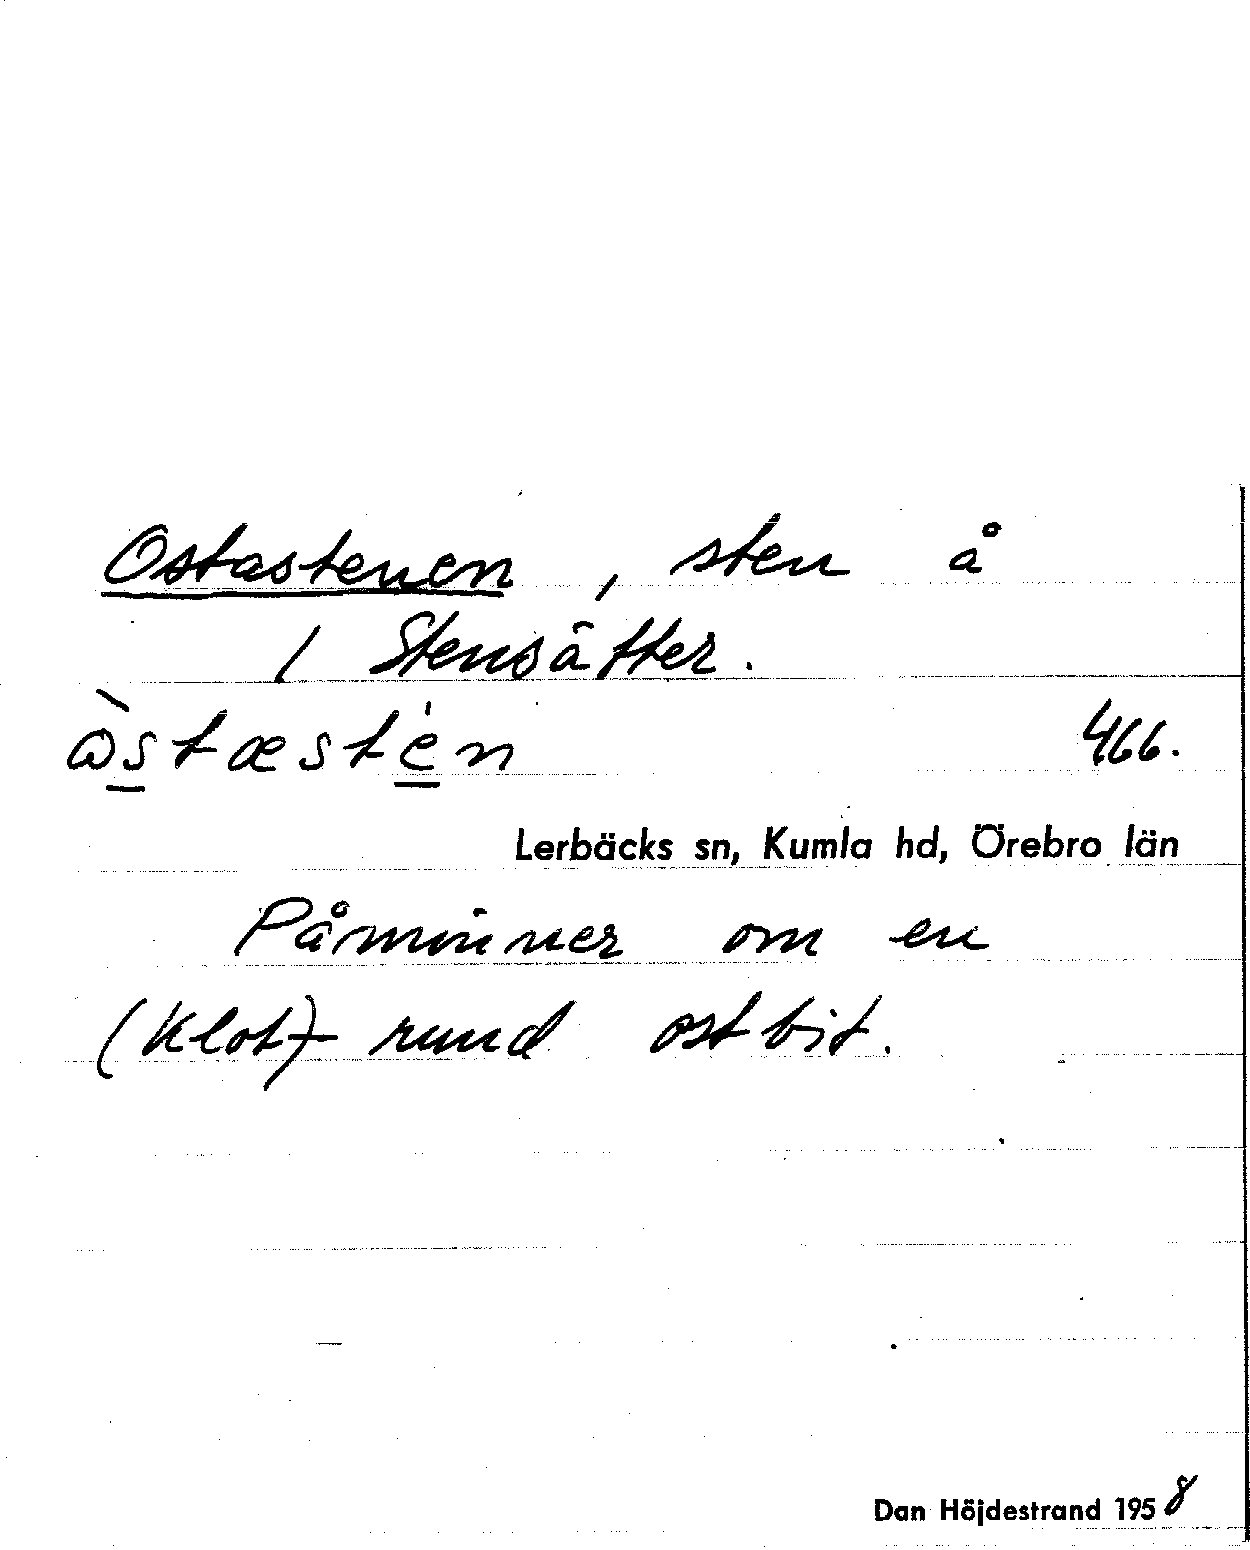 Ostastenen, sten å
/ Stensätter.
òstæstén
466.
Lerbäcks sn, Kumla hd, Örebro län
Påminner om en
(klot)- rund ostbit.
Dan Höjdestrand 1958